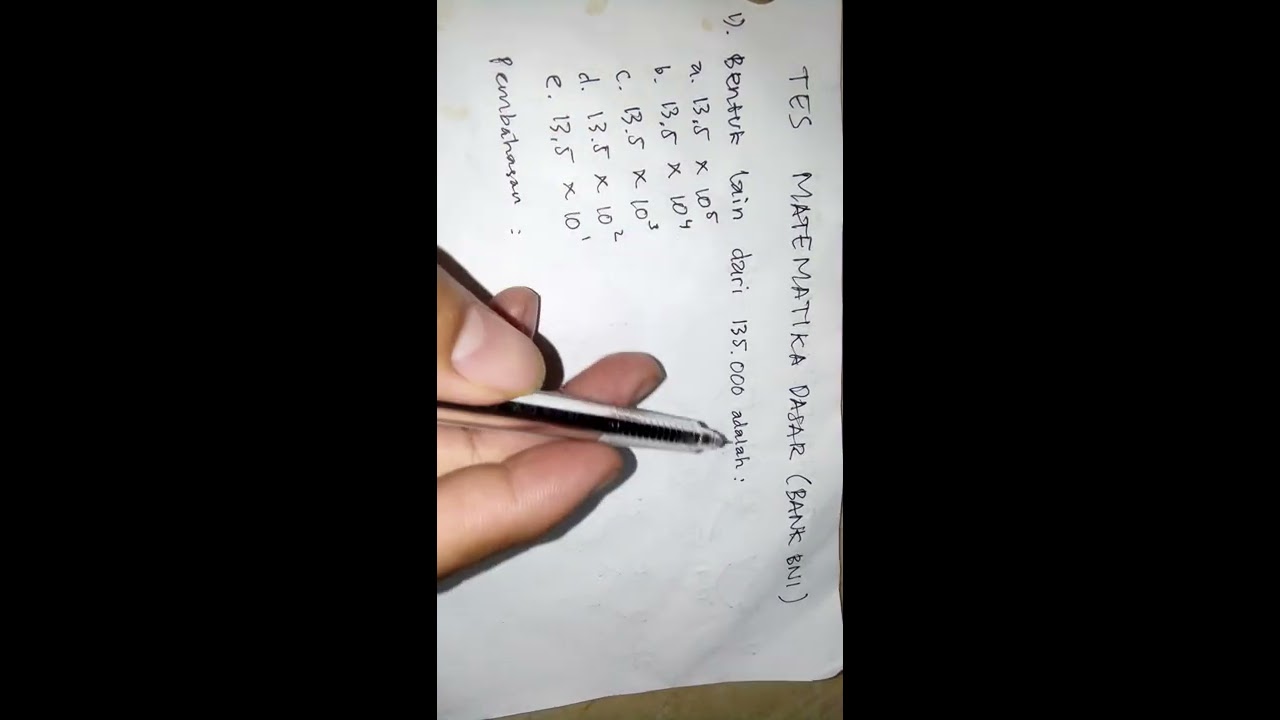 TES MATEMATIKA DASAR (BANK BNI)
1). Bentuk lain dari 135.000 adalah :
a. 13,5 × 10⁵
b. 13,5 × 10⁴
c. 13.5 × 10³
d. 13.5 × 10²
e. 13,5 × 10¹
Pembahasan :